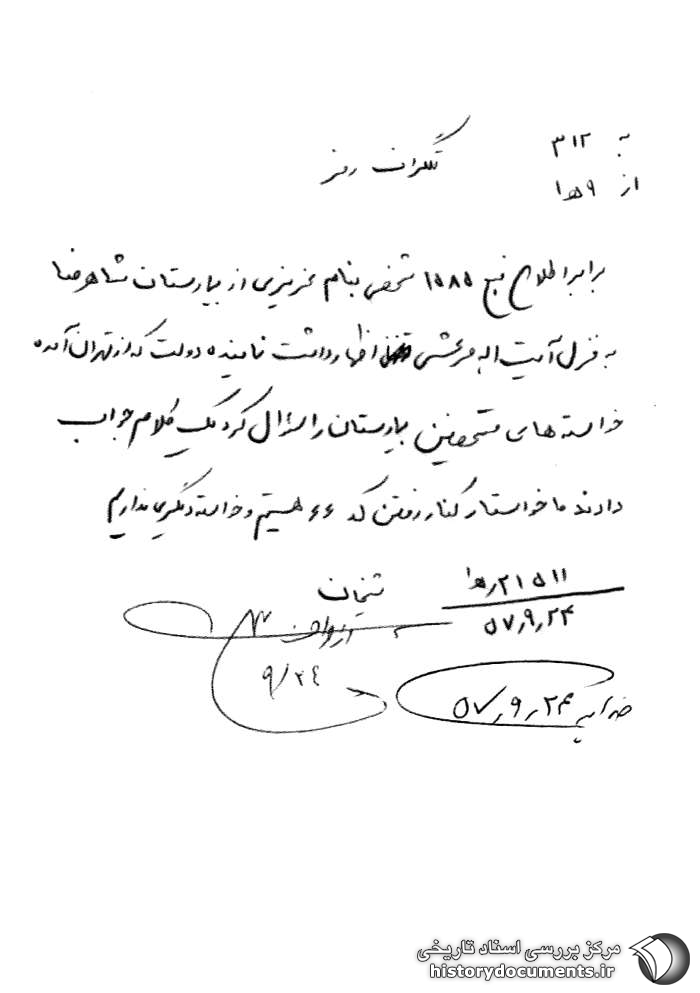 به ۳۱۲
از ۹ هـ ۱
تلگراف رمز
برابر اطلاع منبع ۱۵۸۵ شخصی بنام عزیزی از بیمارستان شاهرضا
به منزل آیت اله مرعشی اظهار داشت نماینده دولت که از تهران آمده
خواسته های متحصنین بیمارستان را سئوال کرد یک کلام جواب
دادند ما خواستار کنار رفتن که ۶۶ هستیم و خواسته دیگری نداریم
۲۱۵۱۱ / هـ ۱
۵۷٫۹٫۲۴
شیخان
۹/۲۴
۵۷٫۹٫۲۴
مرکز بررسی اسناد تاریخی
historydocuments.ir